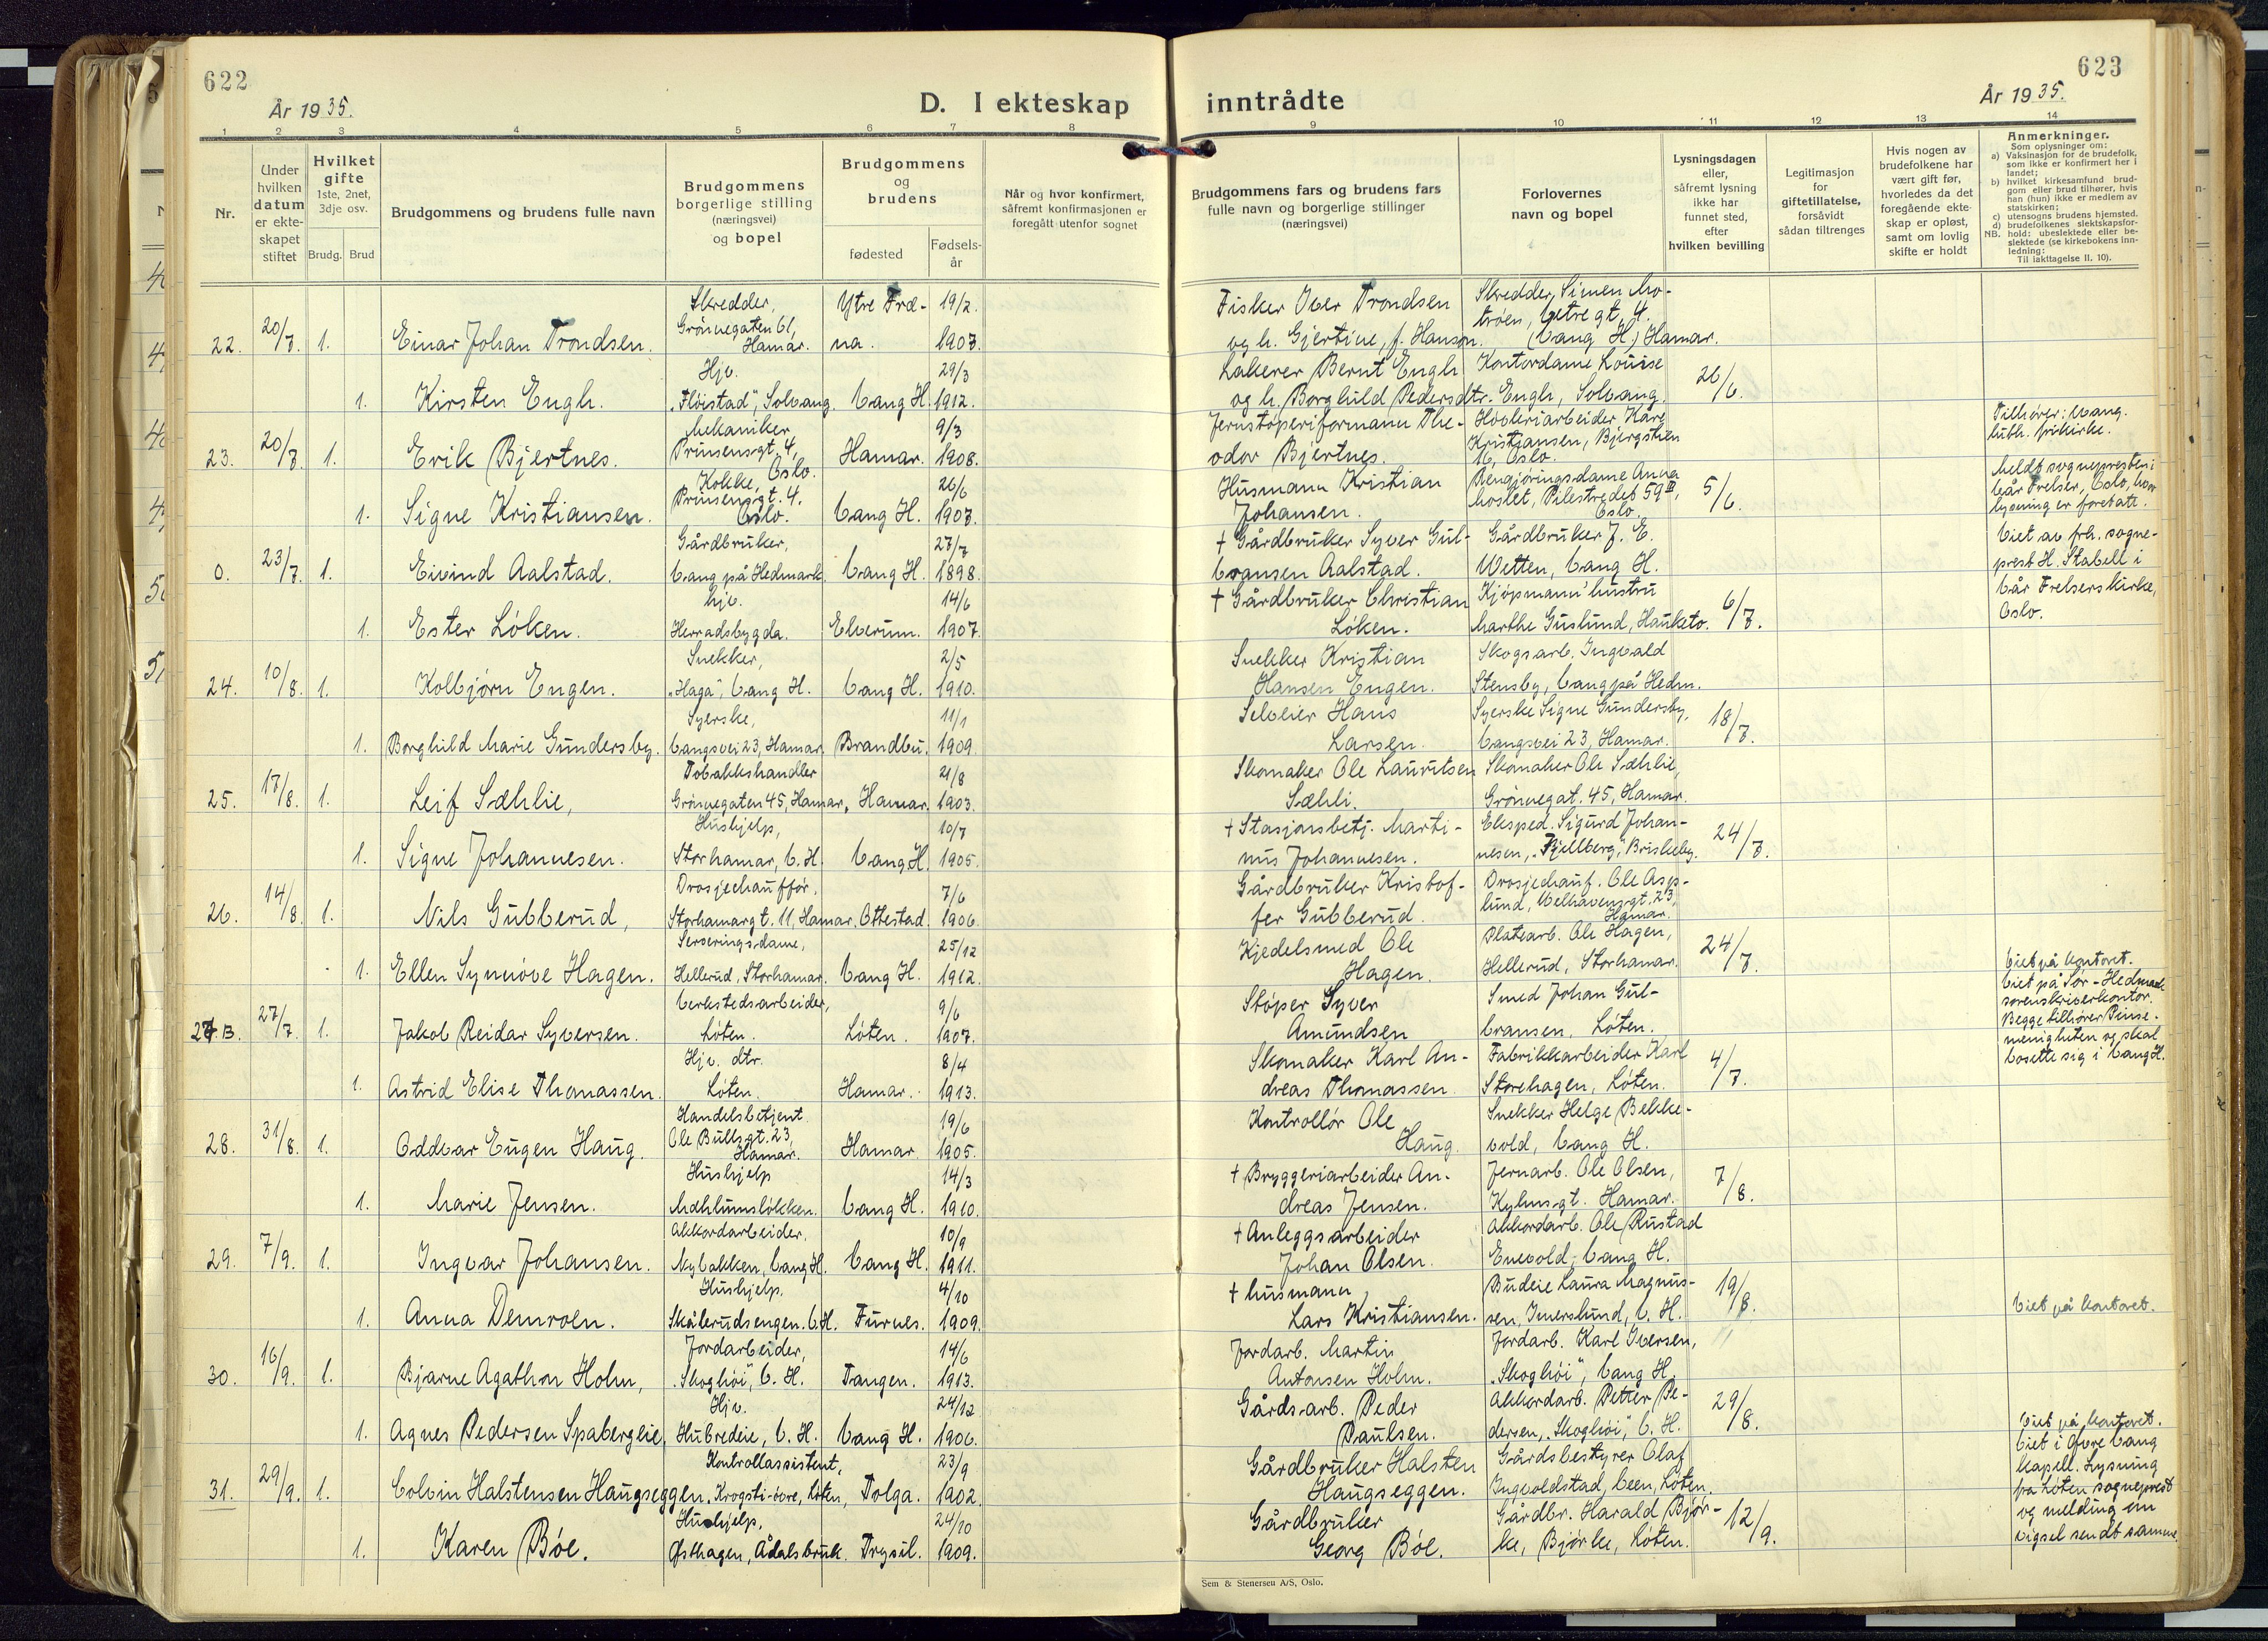 622
År 1935.
D. I ekteskap
1 2 3 4 5 6 7 8
Nr.
Under hvilken datum er ekteskapet stiftet
Hvilket gifte
1ste, 2net, 3dje osv.
Brudg. Brud
Brudgommens og brudens fulle navn
Brudgommens borgerlige stilling (næringsvei) og bopel
Brudgommens og brudens
fødested
Fødselsår
Når og hvor konfirmert, såfremt konfirmasjonen er foregått utenfor sognet
22. 20/7. 1. Einar Johan Trondsen. Skredder, Grönnegaten 61, Hamar. Ytre Fræna. 19/2. 1907.
1. Kirsten Engh. Hjv. "Flöistad", Solvang. Vang H. 29/3 1912.
23. 20/7. 1. Erik Bjertnes. Mekaniker Prinsensgt. 4, Oslo. Hamar. 9/3 1908.
1. Signe Kristiansen. Kokke, Prinsensgt. 4. Oslo. Vang H. 26/6 1907.
0. 23/7. 1. Eivind Aalstad. Gårdbruker, Vang på Hedmark. Vang H. 27/7 1898.
1. Ester Löken. hjv. Herradsbygda. Elverum. 14/6 1907.
24. 10/8. 1. Kolbjørn Engen. Snekker, "Haga", Vang H. Vang H. 2/5 1910.
1. Borghild Marie Gundersby. Syerske, Vangsvei 23, Hamar. Brandbu. 11/1 1909.
25. 17/8. 1. Leif Sæhlie, Tobakkshandler Grönnegaten 45, Hamar, Hamar. 21/8 1903.
1. Signe Johannesen. Hushjelp, Storhamar, V. H. Vang H. 10/7 1905.
26. 14/8. 1. Nils Gubberud, Drosjechauffør, Storhamargt. 11, Hamar. Ottestad. 7/6 1906.
1. Ellen Synnöve Hagen. Serveringsdame, Hellerud, Storhamar. Vang H. 25/12 1912.
27. B. 27/7. 1. Jakob Reidar Syversen. Verkstedsarbeider, Löten. Löten. 9/6 1907.
1. Astrid Elise Thomassen. Hjv. dtr. Löten. Hamar. 8/4 1913.
28. 31/8. 1. Oddvar Eugen Haug. Handelsbetjent Ole Bullsgt. 23, Hamar. Hamar. 19/6 1905.
1. Marie Jensen. Hushjelp Mæhlumslökken. Vang H. 14/3 1910.
29. 7/9. 1. Ingvar Johansen. Akkordarbeider, Nybakken, Vang H. Vang H. 10/9 1911.
1. Anna Demroen. Hushjelp, Skålerudsengen. V. H. Furnes. 4/10 1909.
30. 16/9. 1. Bjarne Agathon Holm, Jordarbeider, "Skoghöi", V. H. Tangen. 14/6 1913.
1. Agnes Pedersen Spaberglie, Hjv. Hubredeie, V. H. Vang H. 24/12 1906.
31. 29/9. 1. Colbin Halstensen Haugseggen, Kontrollassistent, Krogsti-övre, Löten, Tolga. 23/9 1902.
1. Karen Böe. Hushjelp, Østhagen, Ådalsbruk. Trysil. 24/10 1909.
623
År 1935.
inntrådte
9 10 11 12 13 14
Brudgommens fars og brudens fars fulle navn og borgerlige stillinger (næringsvei)
Forlovernes navn og bopel
Lysningsdagen eller, såfremt lysning ikke har funnet sted, efter hvilken bevilling
Legitimasjon for giftetillatelse, forsåvidt sådan tiltrenges
Hvis nogen av brudefolkene har vært gift før, hvorledes da det foregående ekteskap er opløst, samt om lovlig skifte er holdt
Anmerkninger.
Som oplysninger om:
a) Vaksinasjon for de brudefolk, som ikke er konfirmert her i landet;
b) hvilket kirkesamfund brudgom eller brud tilhører, hvis han (hun) ikke er medlem av statskirken;
c) utensogns brudens hjemsted.
d) brudefolkenes slektskapsforhold: ubeslektede eller beslektede (se kirkebokens innledning:
NB. Til iakttagelse II. 10).
Fisker Iver Trondsen og h. Gjertine, f. Hanson. Skredder, Simen Motröen, Vetregt. 4. (Vang H.) Hamar.
Lakerer Bernt Engh og h. Borghild Pedersdtr. Kontordame Louise Engh, Solvang. 26/6.
Jernstöperiformann Theodor Bjertnes. Hövleriarbeider Kåre Kristiansen, Bjergstien 16, Oslo. Tilhører: evang. luth. frikirke.
Husmann Kristian Johansen. Rengjøringsdame Anna Moslet, Pilestredet 59 III, Oslo. 5/6. Meldt sogneprestem i Vår Frelser, Oslo, hvor lysning er foretatt.
† Gårdbruker Syver Gulbransen Aalstad. Gårdbruker J. E. Wetten, Vang H. Viet av fhv. sogneprest H. Stabell i Vår Frelsers kirke, Oslo.
† Gårdbruker Christian Löken. Kjöpmann' hustru Marthe Guslund, Hauketo. 6/7.
Snekker Kristian Hansen Engen. Skogsarb. Ingvald Stensby, Vang på Hedm.
Selveier Hans Larsen. Syerske Signe Gundersby, Vangsvei 23, Hamar. 18/7.
Skomaker Ole Lauritsen Sæhli. Skomaker Ole Sæhlie, Grönnegat. 45, Hamar.
† Stasjonsbetj. Martinus Johannesen. Eksped. Sigurd Johannesen, "Fjellberg", Briskeby. 24/7.
Gårdbruker Kristoffer Gubberud. Drosjechauf. Ole Asplund, Welhavensgt. 23, Hamar.
Kjedelsmed Ole Hagen. Platearb. Ole Hagen, Hellerud, Storhamar. 24/7. Viet på kontoret.
Stöper Syver Amundsen Smed Johan Gulbransen, Löten. Viet på Sör-Hedmark sorenskriverkontor. Begge tilhører Pinsemenigheten og skal bosette sig i Vang H.
Skomaker Karl Andreas Thomassen. Fabrikkarbeider Karl Storehagen, Löten. 4/7.
Kontrollör Ole Haug. Snekker Helge Bekkevold, Vang H.
† Bryggeriarbeider Andreas Jensen. Jernarb. Ole Olsen, Kyhnsgt. Hamar. 7/8.
† Anleggsarbeider Johan Olsen. Akkordarb. Ole Rustad Enevold, Vang H.
† husmann Lars Kristiansen. Budeie Laura Magnussen, Imerslund, V. H. 19/8. Viet på kontoret.
Jordarb. Martin Antonsen Holm. Jordarb. Karl Iversen, "Skoghöi", Vang H.
Gårdsarb. Peder Paulsen. Akkordarb. Petter Pedersen, "Skoghöi", V. H. 29/8. Viet på kontoret.
Gårdbruker Halsten Haugseggen. Gårdsbestyrer Olaf Ingvoldstad, Veen, Löten. Viet i Øvre Vang kapell. Lysning fra Löten sogneprest og melding om vigsel sendt samme.
Gårdbruker Georg Böe. Gårdbr. Harald Bjørke, Bjørke, Löten. 12/9.
Sem & Stenersen A/S, Oslo.